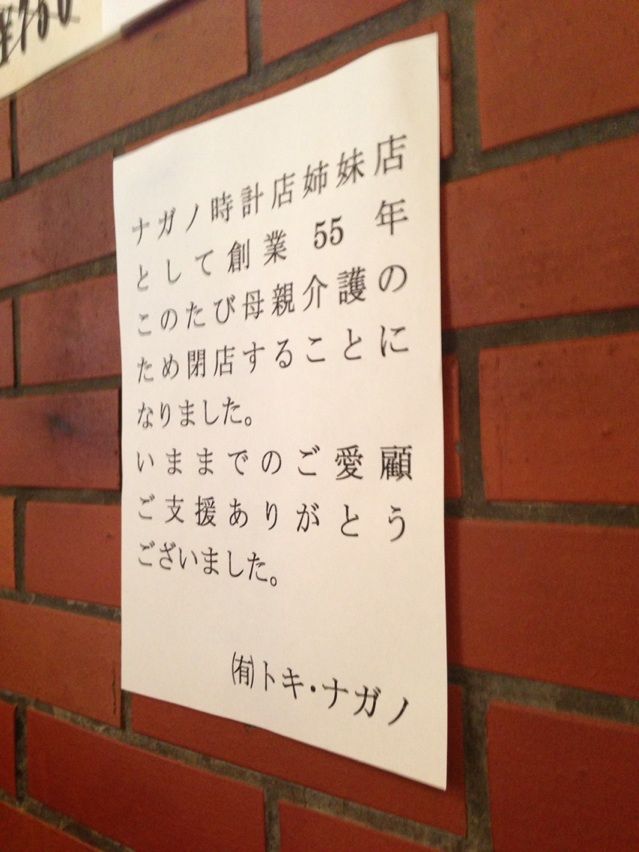 ¥700
ナガノ時計店姉妹店
として創業55年
このたび母親介護の
ため閉店することに
なりました。
いままでのご愛顧
ご支援ありがとう
ございました。
㈲トキ・ナガノ